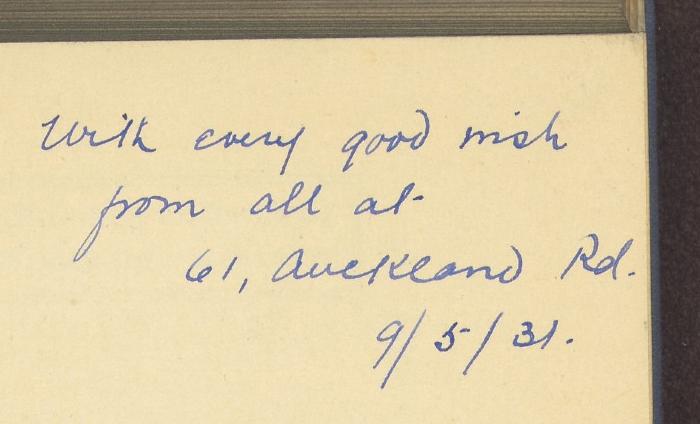 With every good wish
from all at
61, Auckland Rd.
9/5/31.